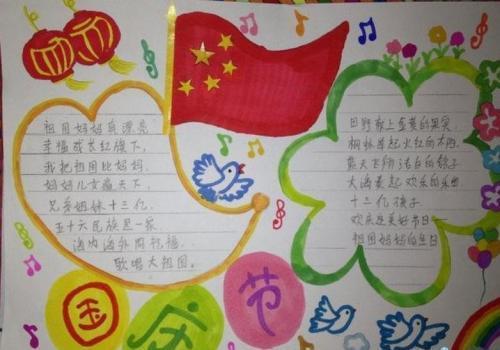 祖国妈妈真漂亮
幸福成长红旗下,
我把祖国比妈妈,
妈妈儿女遍天下,
兄弟姐妹十三亿,
五十六民族是一家,
海内海外同祝福,
歌唱大祖国。
田野献上金黄的果实,
枫林举起火红的木旺,
蓝天飞翔洁白的鸽子
大海奏起欢乐的乐曲
十三亿孩子
欢庆您美好节日—
祖国妈妈的生日
国
庆
节